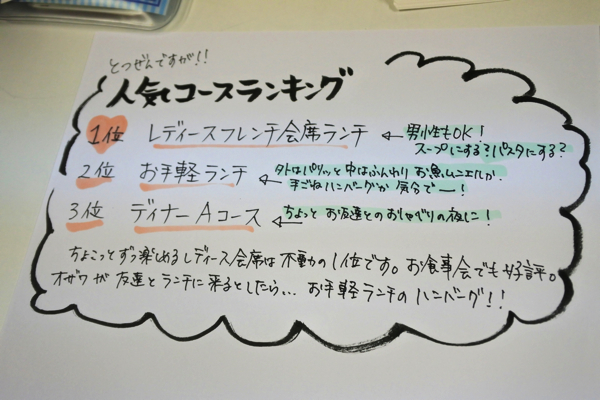 とつぜんですが!!
人気コースランキング
1位 レディースフレンチ会席ランチ ← 男性もOK!
スープにする?パスタにする?
2位 お手軽ランチ ← 外はパリッと中はふんわり お魚ムニエルか
手ごねハンバーグか 気分でー!
3位 ディナーAコース ← ちょっと お友達とのおしゃべりの夜に!
ちょこっとずつ楽しめるレディース会席は不動の1位です。お食事会でも好評。
オザワが友達とランチに来るとしたら... お手軽ランチのハンバーグ!!